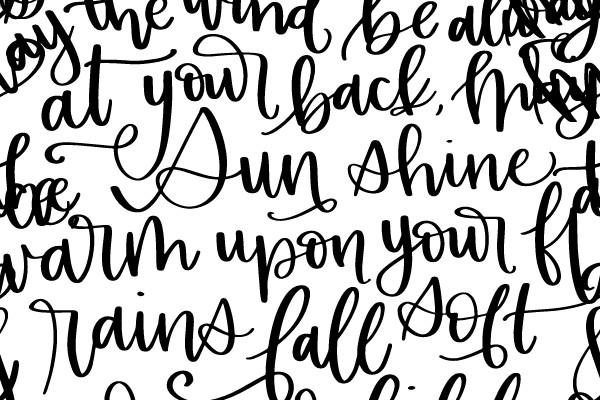 ay the wind be al
at your back, may
Sun shine
warm upon your f
rains fall soft